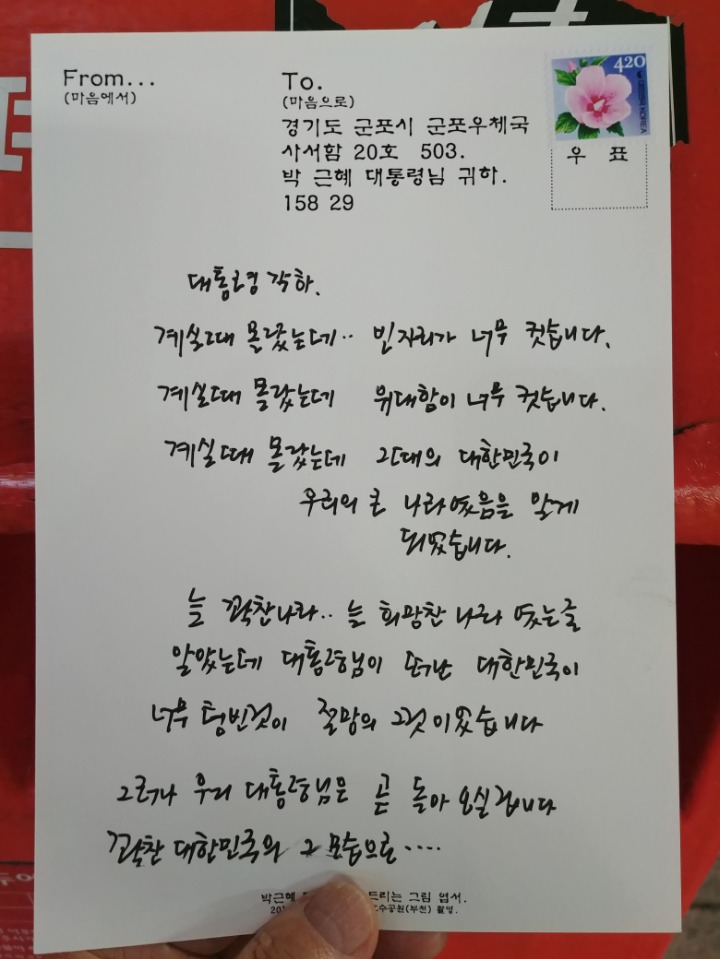 From...
(마음에서)
To.
(마음으로)
경기도 군포시 군포우체국
사서함 20호 503.
박 근혜 대통령님 귀하.
158 29
420
대한민국 KOREA
우 표
대통령 각하.
계실때 몰랐는데.. 빈자리가 너무 컷습니다.
계실때 몰랐는데 위대함이 너무 컷습니다.
계실때 몰랐는데 그대의 대한민국이
우리의 큰 나라였음을 알게
되었습니다.
늘 꽉찬나라.. 늘 희망찬 나라 였는줄
알았는데 대통령님이 떠난 대한민국이
너무 텅빈것이 절망의 그것 이었습니다
그러나 우리 대통령님은 곧 돌아 오실겁니다
꽉찬 대한민국의 그 모습으로....
박근혜 드리는 그림 엽서.
수공원(부천) 촬영.